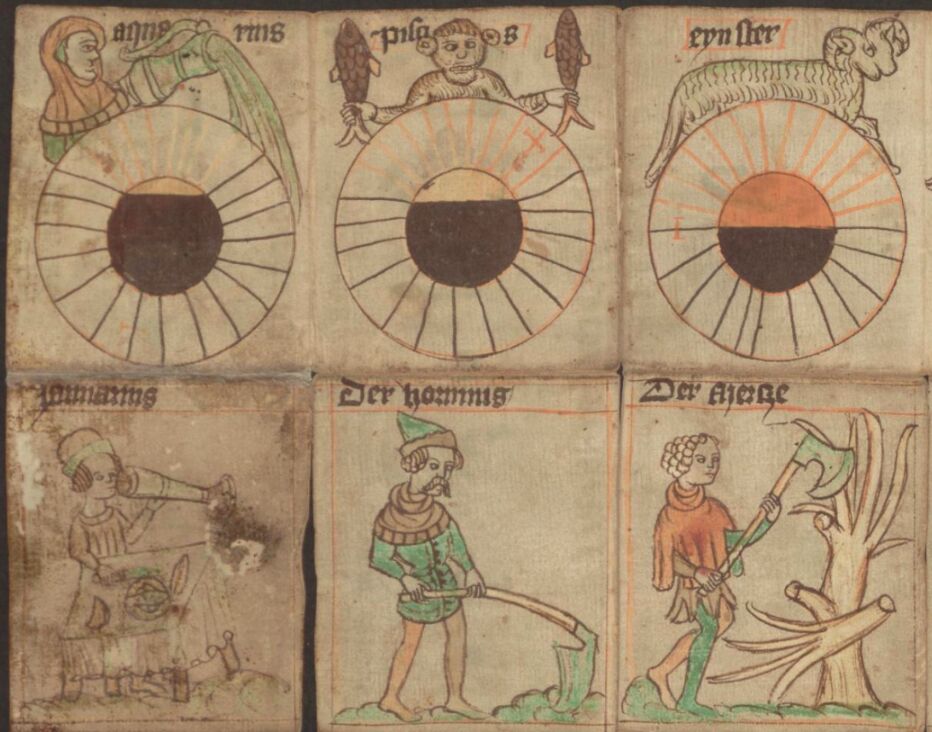 aqua rius
pisce s
eyn ster
Januarius
Der hornnig
Der Mertze